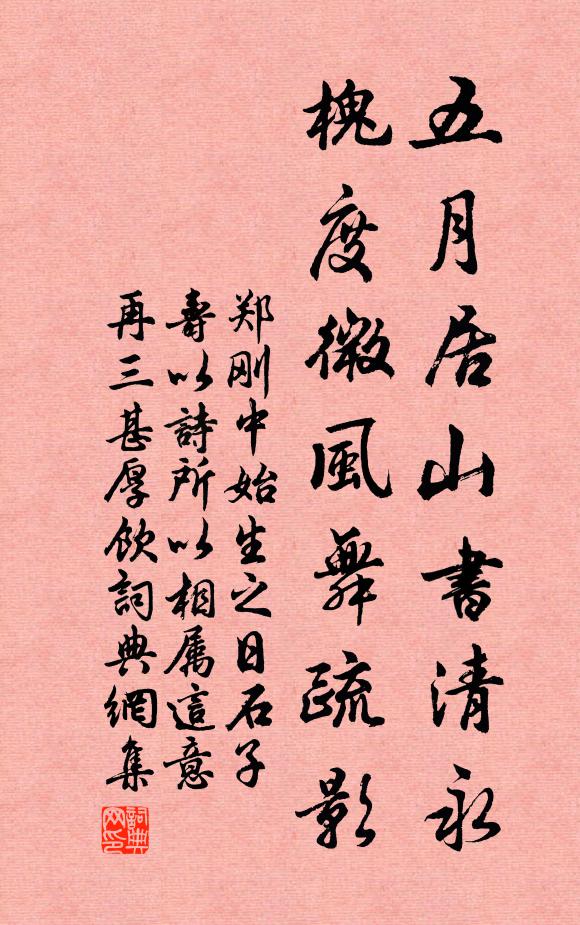 五月居山書清永
槐度微風舞疏影
郑刚中始生之日石子
壽以詩所以相属這意
再三甚厚飲詞典網集
詞典网印